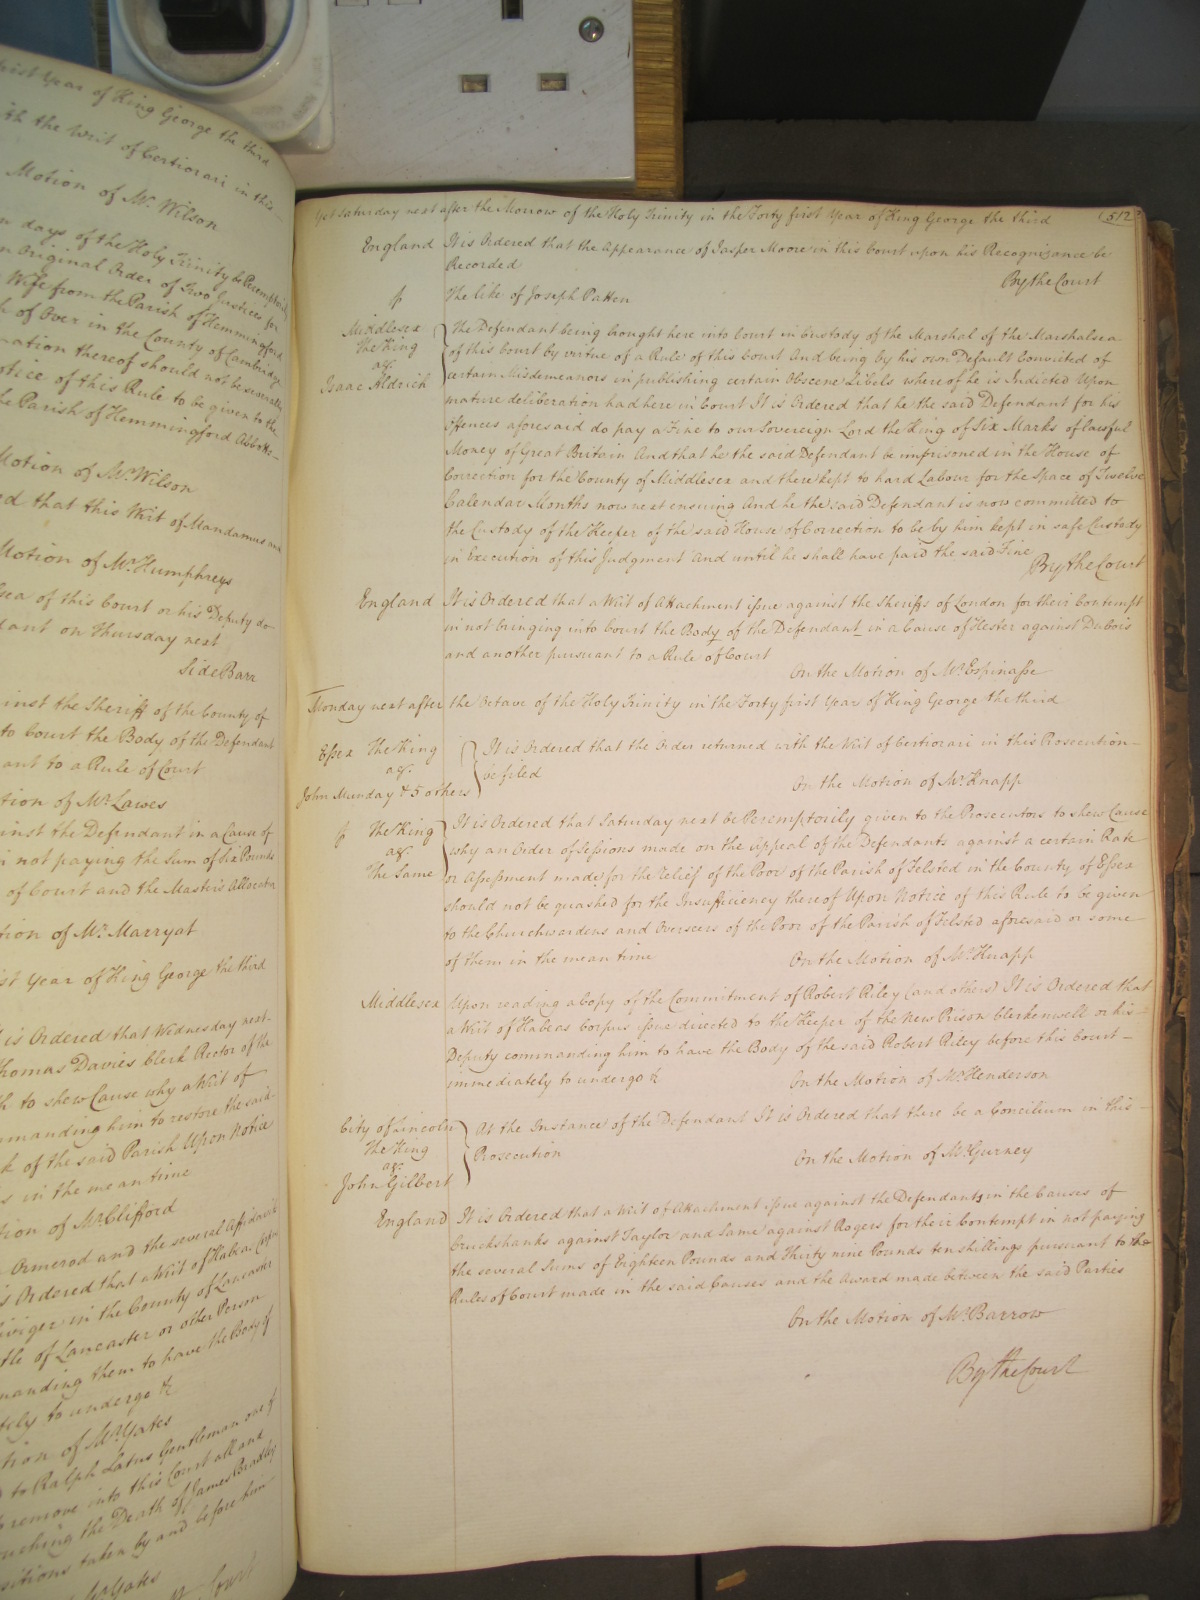 first Year of King George the third
with the Writ of Certiorari in this
Motion of Mr. Wilson
days of the Holy Trinity be Peremptorily
Original Order of Two Justices for
Wife from the Parish of Hemmingford
of Over in the County of Cambridge
thereof should not be severally
Notice of this Rule to be given to the
the Parish of Hemmingford Abbotts
Motion of Mr. Wilson
that this Writ of Mandamus and
Motion of Mr. Humphreys
of this Court or his Deputy do
on Thursday next
Side Barr
against the Sheriff of the County of
to Court the Body of the Defendant
to a Rule of Court
of Mr. Lawes
against the Defendant in a Cause of
in not paying the Sum of Six Pounds
of Court and the Master's Allocatur
of Mr. Marryat
Year of King George the third
is Ordered that Wednesday next
Thomas Davies Clerk Rector of the
to shew Cause why a Writ of
him to restore the said
of the said Parish Upon Notice
in the mean time
of Mr. Clifford
Ormerod and the several Affidavits
Ordered that a Writ of Habeas Corpus
in the County of Lancaster
of Lancaster or other Person
them to have the Body of
to undergo &c
of Mr. Yates
to Ralph Latus Gentleman one of
remove into this Court all and
the Death of James Bradley
taken by and before him
Yates
Court
Yet Saturday next after the Morrow of the Holy Trinity in the Forty first Year of King George the third (512
England It is Ordered that the Appearance of Jasper Moore in this Court upon his Recognizance be
Recorded By the Court
The like of Joseph Patten
Middlesex The Defendant being brought here into Court in Custody of the Marshal of the Marshalsea
The King of this Court by virtue of a Rule of this Court And being by his own Default Convicted of
agt. certain Misdemeanors in publishing certain Obscene Libels whereof he is Indicted Upon
Isaac Aldrich mature deliberation had here in Court It is Ordered that he the said Defendant for his
offences aforesaid do pay a Fine to our Sovereign Lord the King of Six Marks of lawful
Money of Great Britain And that he the said Defendant be imprisoned in the House of
Correction for the County of Middlesex and there kept to hard Labour for the Space of Twelve
Calendar Months now next ensuing And he the said Defendant is now committed to
the Custody of the Keeper of the said House of Correction to be by him kept in safe Custody
in Execution of this Judgment and until he shall have paid the said Fine By the Court
England It is Ordered that a Writ of Attachment issue against the Sheriffs of London for their Contempt
in not bringing into Court the Body of the Defendant in a Cause of Hester against Dubois
and another pursuant to a Rule of Court
On the Motion of Mr. Espinasse
Monday next after the Octave of the Holy Trinity in the Forty first Year of King George the third
Essex The King It is Ordered that the Order returned with the Writ of Certiorari in this Prosecution
agt. be filed
John Munday & 5 others On the Motion of Mr. Knapp
The King It is Ordered that Saturday next be Peremptorily given to the Prosecutors to shew Cause
agt. why an Order of Sessions made on the Appeal of the Defendants against a certain Rate
The Same or Assessment made for the Relief of the Poor of the Parish of Felsted in the County of Essex
should not be quashed for the Insufficiency thereof Upon Notice of this Rule to be given
to the Churchwardens and Overseers of the Poor of the Parish of Felsted aforesaid or some
of them in the mean time On the Motion of Mr. Knapp
Middlesex Upon reading a Copy of the Commitment of Robert Riley (and others) It is Ordered that
a Writ of Habeas Corpus issue directed to the Keeper of the New Prison Clerkenwell or his
Deputy commanding him to have the Body of the said Robert Riley before this Court
immediately to undergo &c On the Motion of Mr. Henderson
City of Lincoln At the Instance of the Defendant It is Ordered that there be a Concilium in this
The King Prosecution
agt. On the Motion of Mr. Gurney
John Gilbert
England It is Ordered that a Writ of Attachment issue against the Defendants in the Causes of
Cruckshanks against Taylor and Same against Rogers for their Contempt in not paying
the several Sums of Eighteen Pounds and Thirty nine Pounds ten shillings pursuant to the
Rules of Court made in the said Causes and the Award made between the said Parties
On the Motion of Mr. Barrow
By the Court